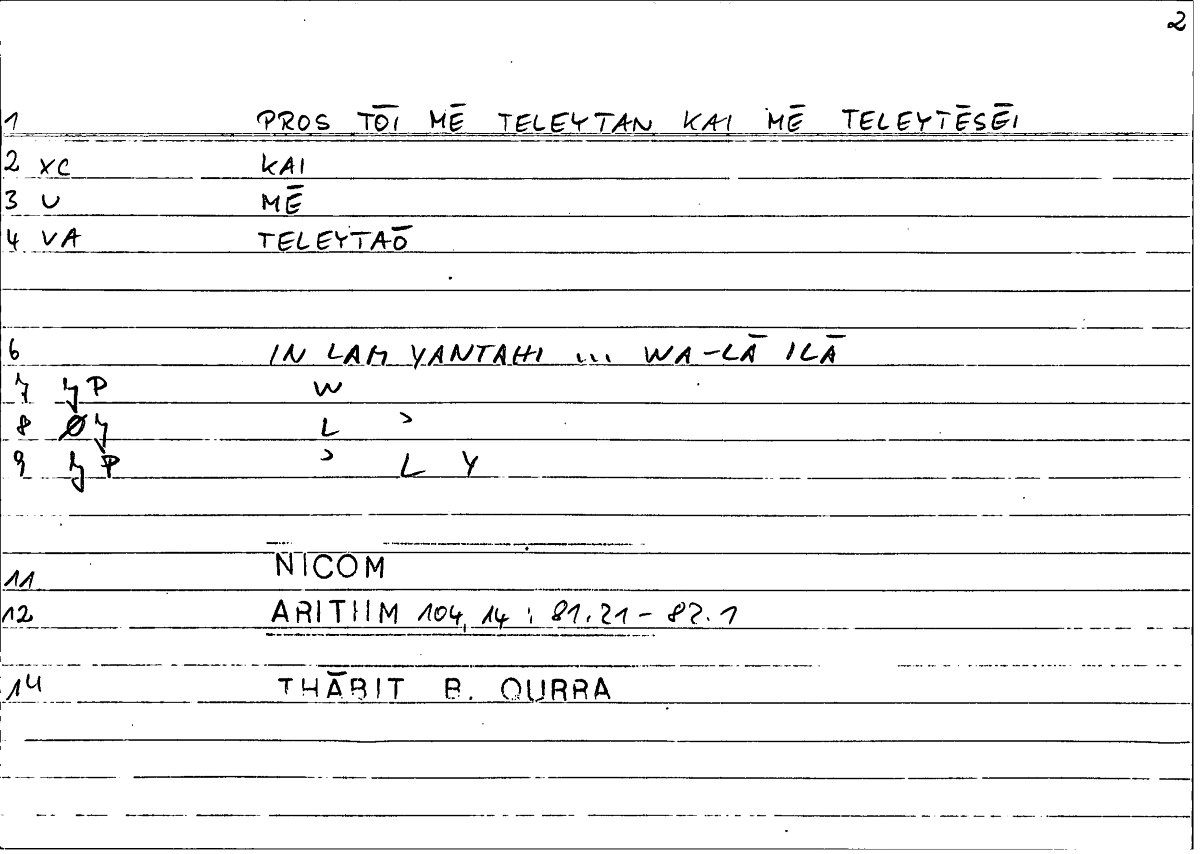 2
1 PROS TŌI MĒ TELEYTAN KAI MĒ TELEYTĒSĒI
2 XC KAI
3 U MĒ
4 VA TELEYTAŌ
6 IN LAM YANTAHI ... WA-LĀ ILĀ
7 P W
8 L ʾ
9 P ʾ L Y
11 NICOM
12 ARITHM 104, 14 ; 81.21 - 82.1
14 THĀBIT B. QURRA